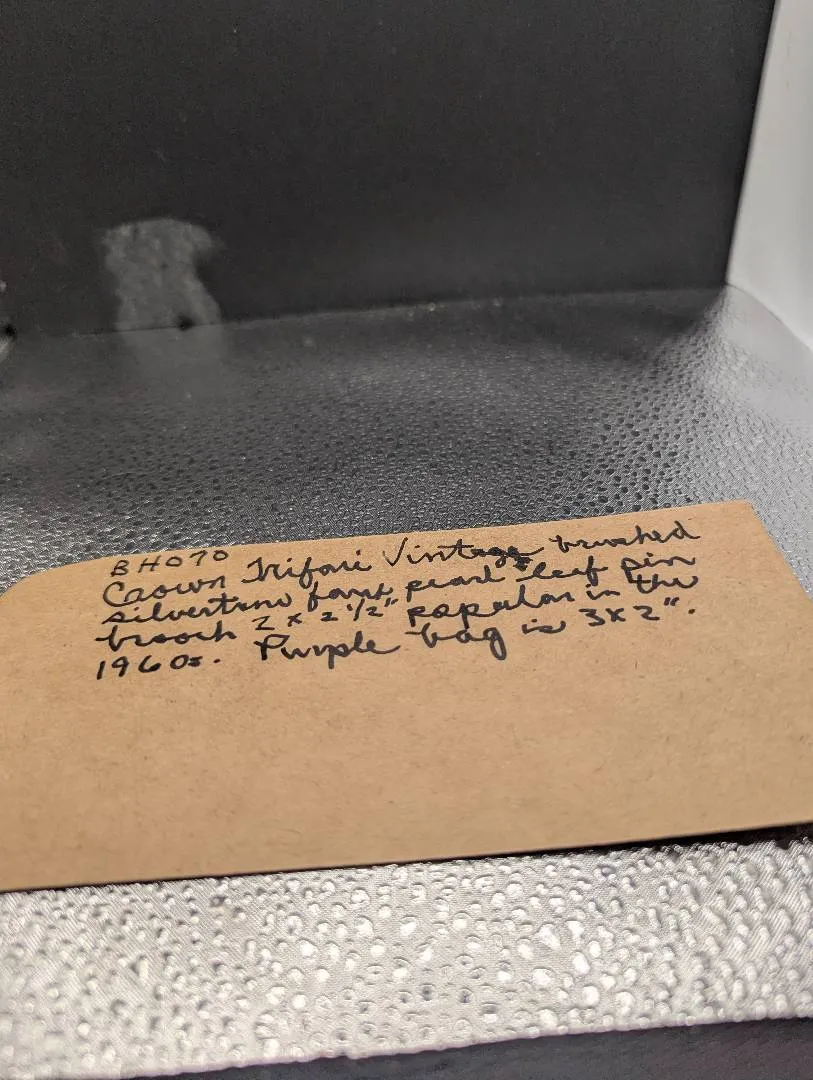 BH070
Crown Trifari Vintage brushed
silvertone faux pearl leaf pin
brooch 2 x 2 1/2" popular in the
1960s. Purple bag is 3x2".